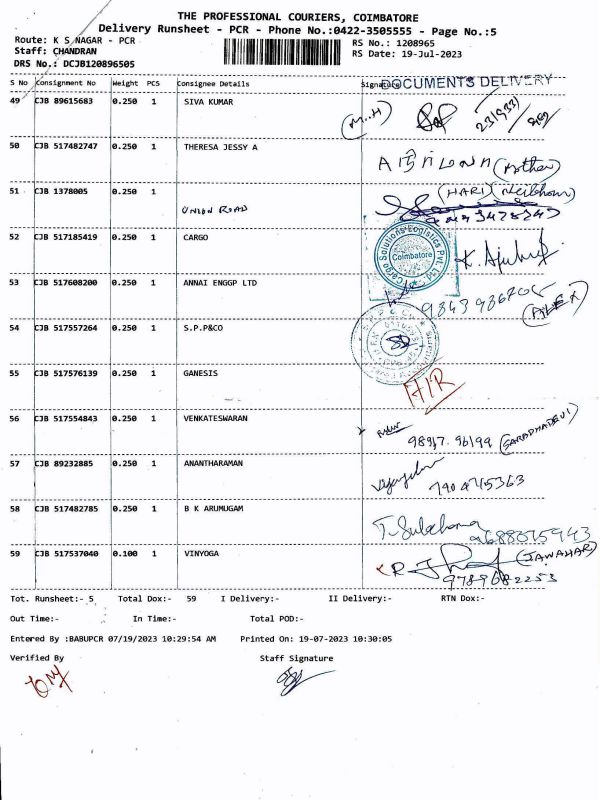 THE PROFESSIONAL COURIERS, COIMBATORE
Delivery Runsheet - PCR - Phone No.:0422-3505555 - Page No.:5
Route: K S NAGAR - PCR
RS No.: 1208965
Staff: CHANDRAN
RS Date: 19-Jul-2023
DRS No.: DCJB120896505
S No Consignment No Weight PCS Consignee Details Signature
DOCUMENTS DELIVERY
49 CJB 89615683 0.250 1 SIVA KUMAR
(M..H)
50 CJB 517482747 0.250 1 THERESA JESSY A
(Mother)
51 CJB 1378005 0.250 1
(HARI)
UNION ROAD
52 CJB 517185419 0.250 1 CARGO
Cargo Solutions Logistics Pvt. Ltd
Coimbatore
53 CJB 517608200 0.250 1 ANNAI ENGGP LTD
(ALEX)
54 CJB 517557264 0.250 1 S.P.P&CO
55 CJB 517576139 0.250 1 GANESIS
H/R
56 CJB 517554843 0.250 1 VENKATESWARAN
(SARADHADEVI)
57 CJB 89232885 0.250 1 ANANTHARAMAN
58 CJB 517482785 0.250 1 B K ARUMUGAM
T. Sulochana
59 CJB 517537040 0.100 1 VINYOGA
(JAWAHAR)
9789682253
Tot. Runsheet:- 5 Total Dox:- 59 I Delivery:- II Delivery:- RTN Dox:-
Out Time:- In Time:- Total POD:-
Entered By :BABUPCR 07/19/2023 10:29:54 AM Printed On: 19-07-2023 10:30:05
Verified By Staff Signature